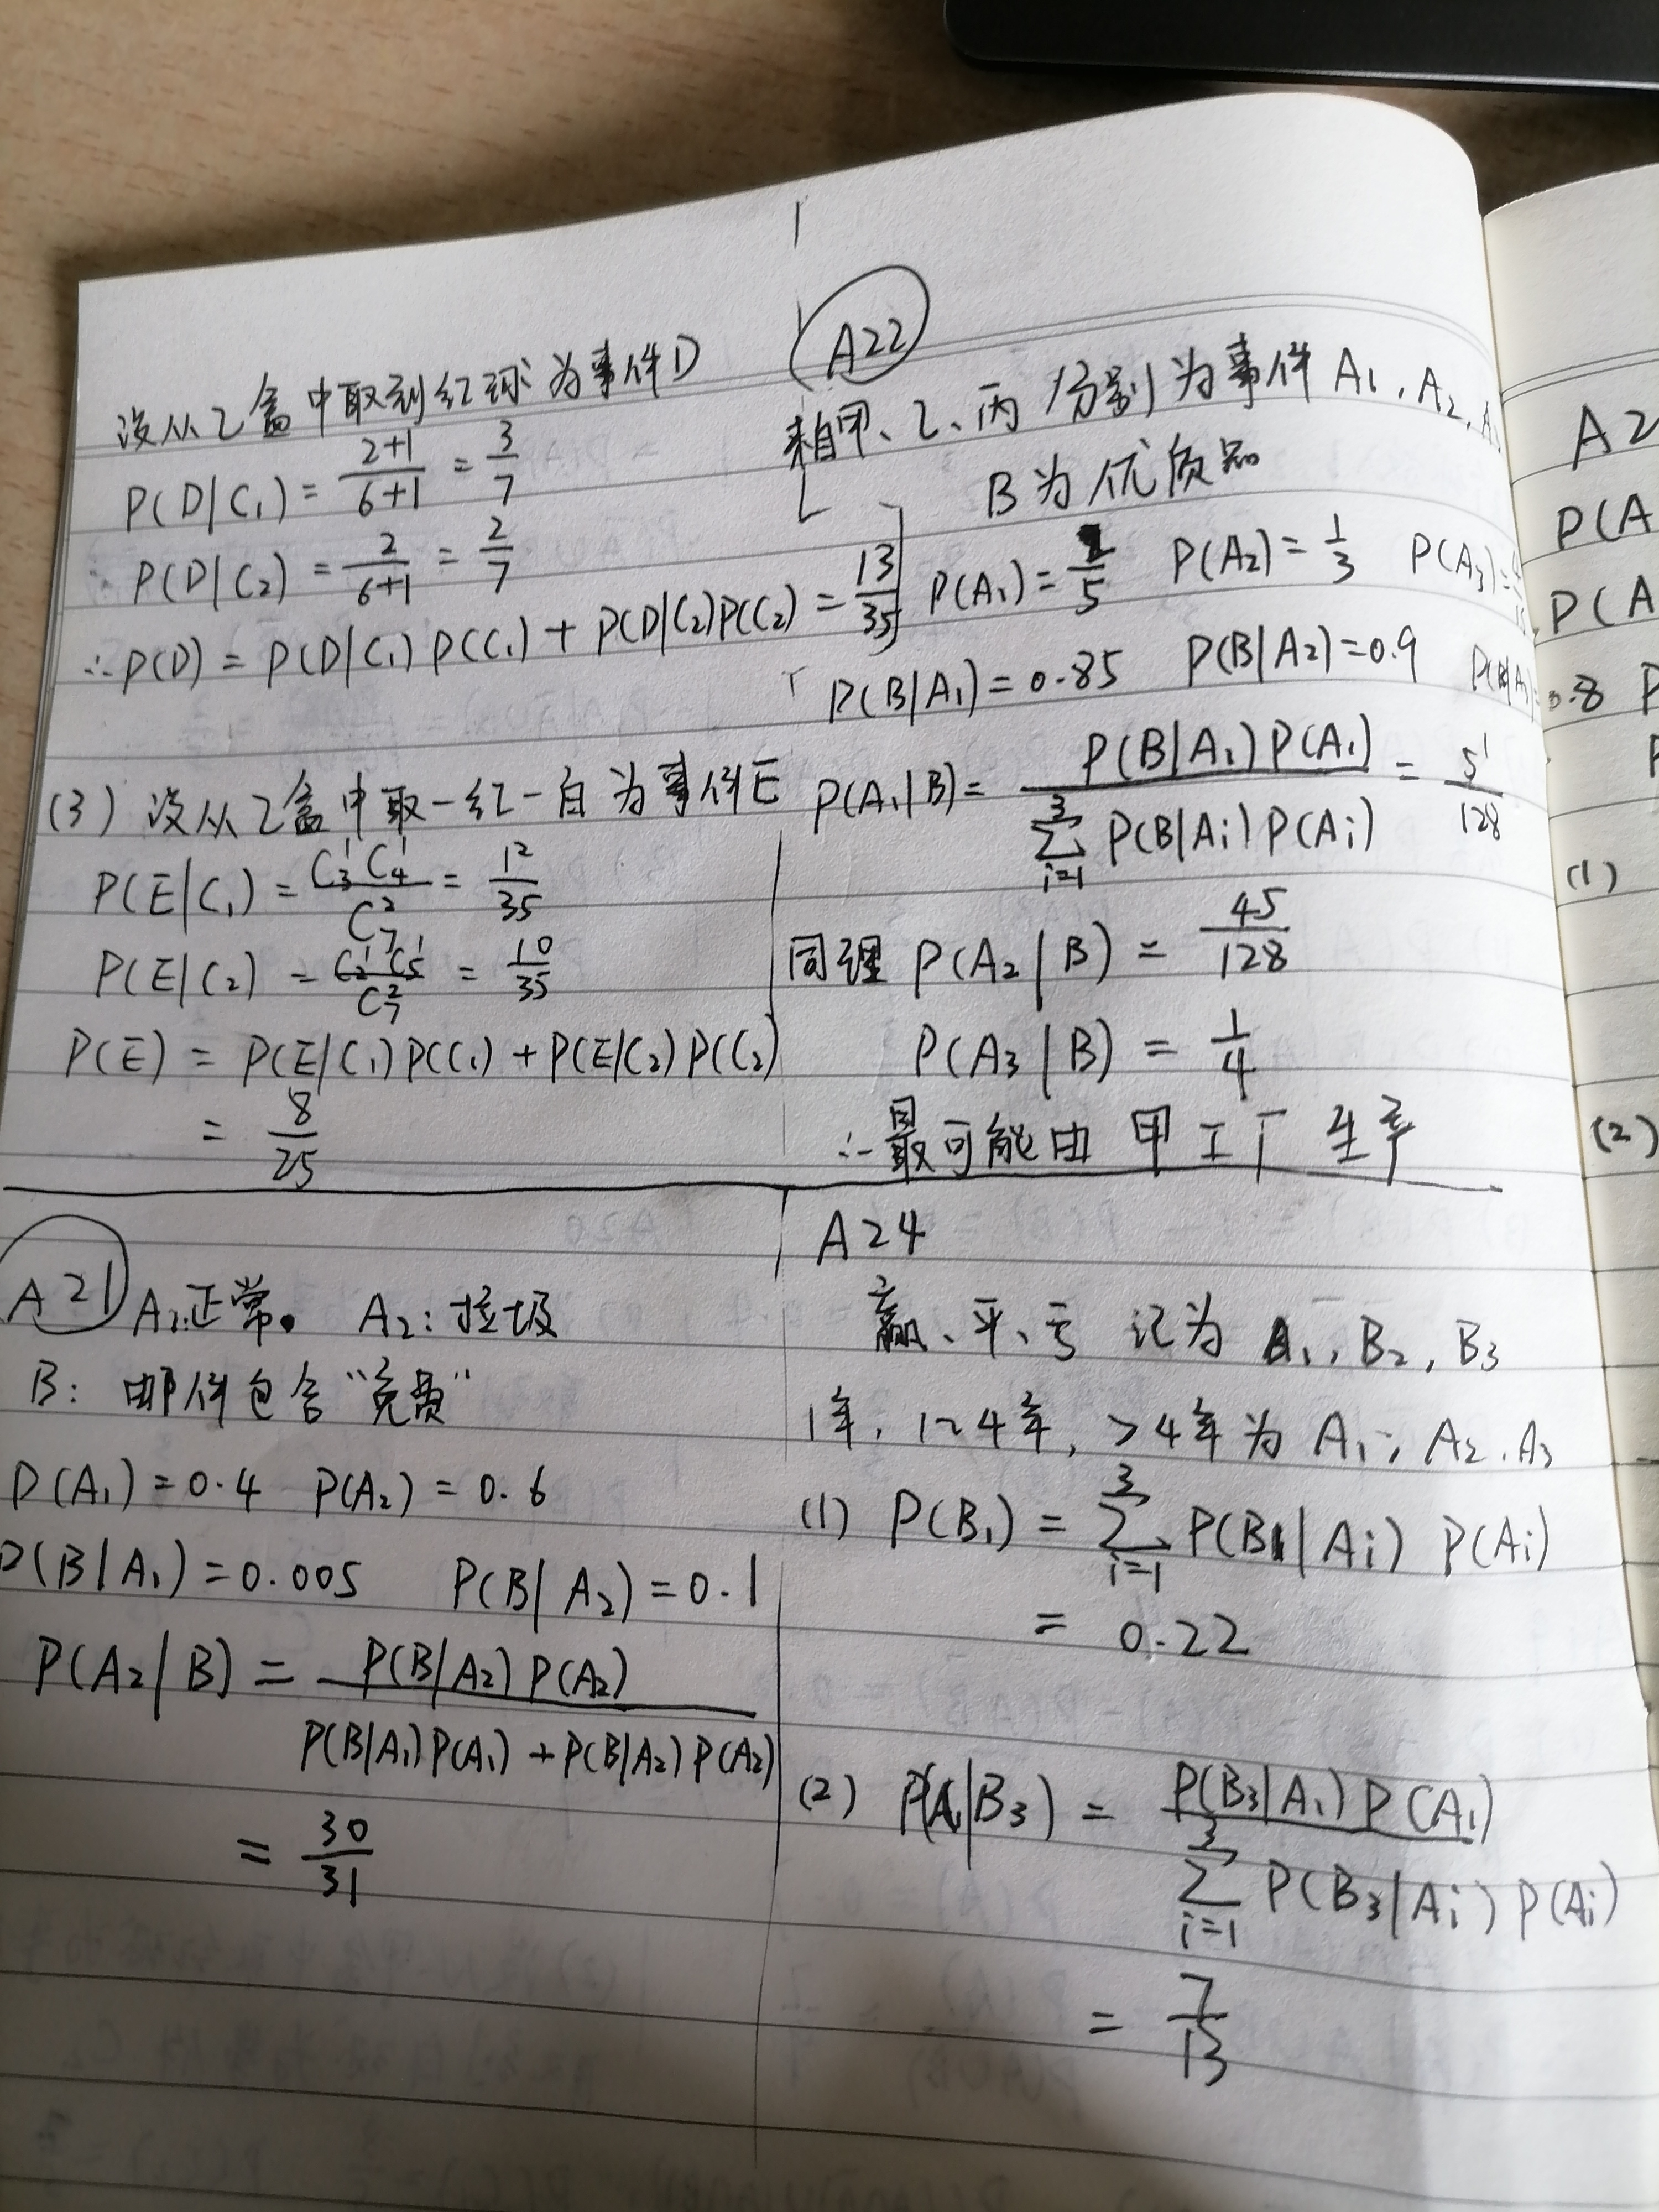 设从乙盒中取到红球为事件D
P(D|C₁) = (2+1)/(6+1) = 3/7
P(D|C₂) = 2/(6+1) = 2/7
∴P(D) = P(D|C₁)P(C₁) + P(D|C₂)P(C₂) = 13/35
(3) 设从乙盒中取一红一白为事件E
P(E|C₁) = C₃¹C₄¹/C₇² = 12/35
P(E|C₂) = C₂¹C₅¹/C₇² = 10/35
P(E) = P(E|C₁)P(C₁) + P(E|C₂)P(C₂)
= 8/25
A21 A₁:正常。 A₂:垃圾
B: 邮件包含“免费”
P(A₁)=0.4 P(A₂)=0.6
P(B|A₁)=0.005 P(B|A₂)=0.1
P(A₂|B) = P(B|A₂)P(A₂)/(P(B|A₁)P(A₁)+P(B|A₂)P(A₂))
= 30/31
A22
来自甲、乙、丙分别为事件A₁,A₂,
B为优质品
P(A₁)=2/5 P(A₂)=1/3 P(A₃)=
P(B|A₁)=0.85 P(B|A₂)=0.9 P(B|A₃)=
P(A₁|B)= P(B|A₁)P(A₁)/∑³ᵢ₌₁P(B|Aᵢ)P(Aᵢ) = 51/128
同理 P(A₂|B) = 45/128
P(A₃|B) = 1/4
∴最可能由甲工厂生产
A24
赢、平、亏 记为 B₁,B₂,B₃
1年,1~4年,>4年为A₁,A₂,A₃
(1) P(B₁) = ∑³ᵢ₌₁ P(B₁|Aᵢ) P(Aᵢ)
= 0.22
(2) P(A₁|B₃) = P(B₃|A₁)P(A₁)/∑³ᵢ₌₁P(B₃|Aᵢ)P(Aᵢ)
= 7/13
A2
P(A
P(A
0.8 P
(1)
(2)